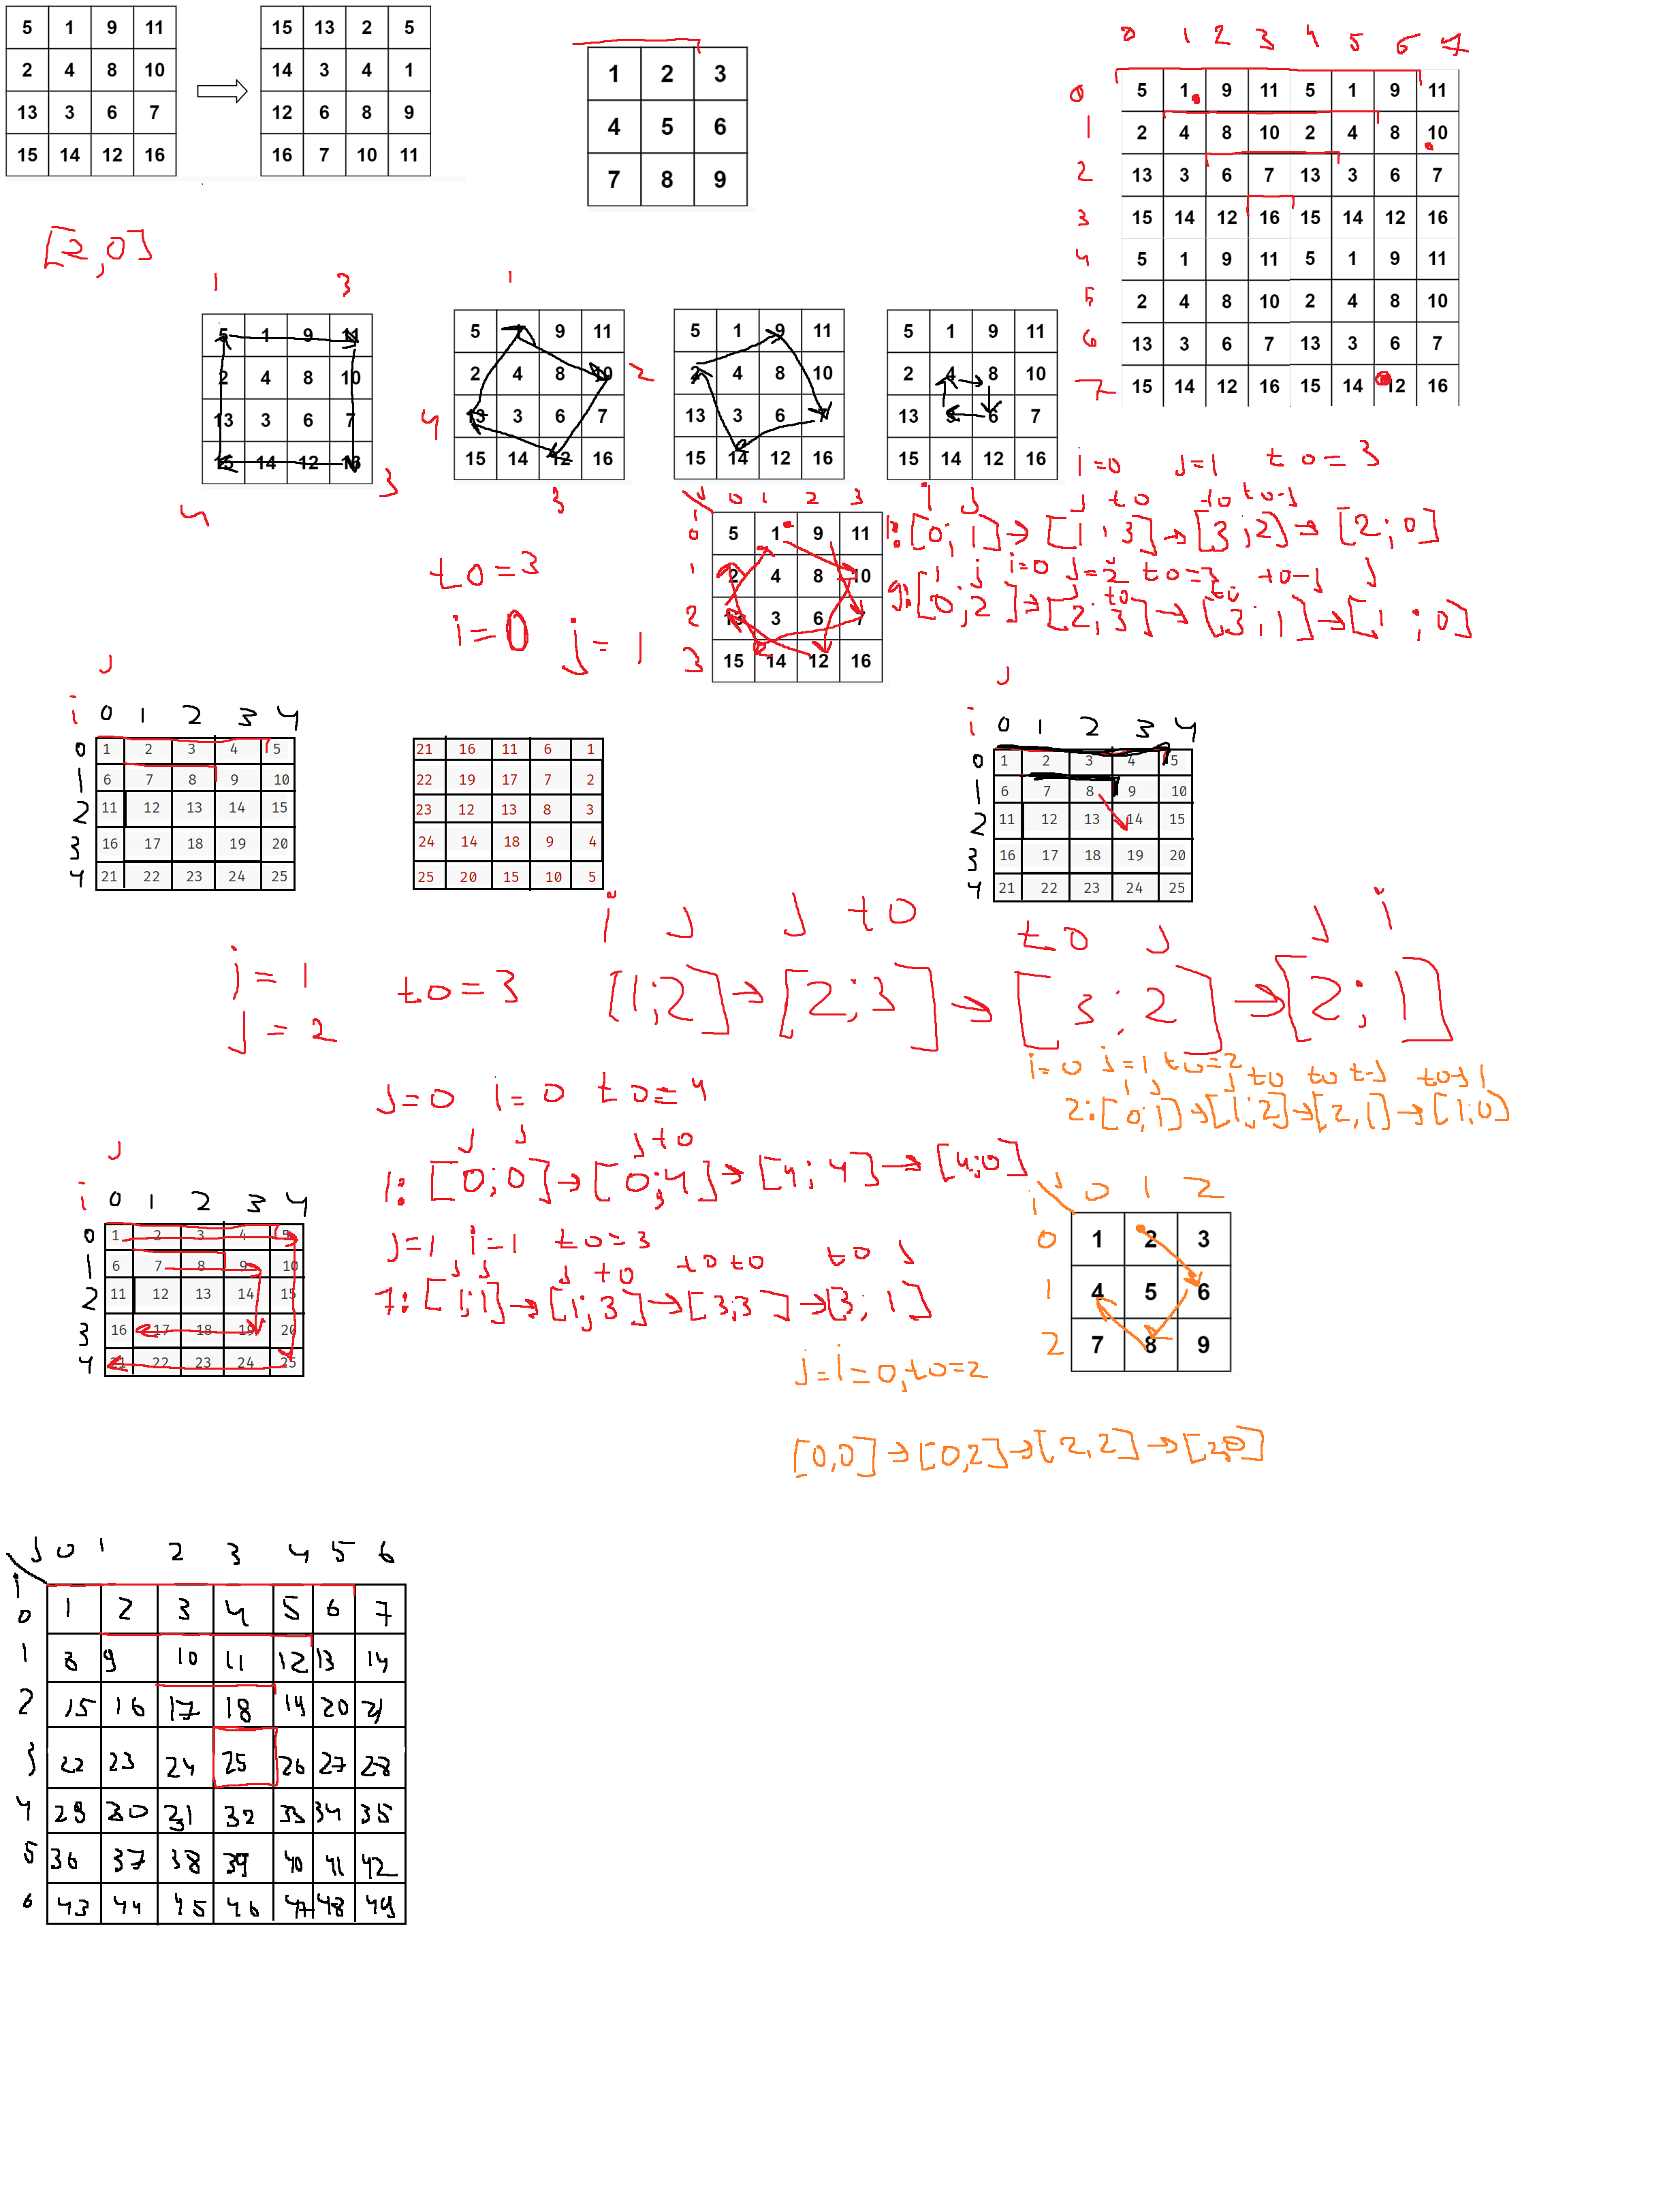 5 1 9 11
2 4 8 10
13 3 6 7
15 14 12 16
15 13 2 5
14 3 4 1
12 6 8 9
16 7 10 11
1 2 3
4 5 6
7 8 9
0 1 2 3 4 5 6 7
0 5 1 9 11 5 1 9 11
1 2 4 8 10 2 4 8 10
2 13 3 6 7 13 3 6 7
3 15 14 12 16 15 14 12 16
4 5 1 9 11 5 1 9 11
5 2 4 8 10 2 4 8 10
6 13 3 6 7 13 3 6 7
7 15 14 12 16 15 14 12 16
[2,0]
1 3
5 1 9 11
2 4 8 10
13 3 6 7
15 14 12 16
4 3
1
5 9 11
2 4 8 10 2
4 13 3 6 7
15 14 12 16
3
5 1 9 11
2 4 8 10
13 3 6 7
15 14 12 16
5 1 9 11
2 4 8 10
13 3 6 7
15 14 12 16
i=0 j=1 to=3
j 0 1 2 3
i
0 5 1 9 11
1 2 4 8 10
2 13 3 6 7
3 15 14 12 16
i j j to to to-j
1:[0;1]→[1;3]→[3;2]→[2;0]
i j i=0 j=2 to=3 to-j j
j to to
9:[0;2]→[2;3]→[3;1]→[1;0]
to=3
i=0 j=1
j
i 0 1 2 3 4
0 1 2 3 4 5
1 6 7 8 9 10
2 11 12 13 14 15
3 16 17 18 19 20
4 21 22 23 24 25
21 16 11 6 1
22 19 17 7 2
23 12 13 8 3
24 14 18 9 4
25 20 15 10 5
j
i 0 1 2 3 4
0 1 2 3 4 5
1 6 7 8 9 10
2 11 12 13 14 15
3 16 17 18 19 20
4 21 22 23 24 25
i j j to to j j i
i=1 to=3 [1;2]→[2;3]→[3;2]→[2;1]
j=2
i=0 j=1 to=2
i j j to to t-j to-j 1
2:[0;1]→[1;2]→[2,1]→[1;0]
j=0 i=0 to=4
j j j to
1:[0;0]→[0;4]→[4;4]→[4;0]
j=1 i=1 to=3
j j j to to to to j
7:[1;1]→[1;3]→[3;3]→[3;1]
j
i 0 1 2 3 4
0 1 2 3 4 5
1 6 7 8 9 10
2 11 12 13 14 15
3 16 17 18 19 20
4 21 22 23 24 25
j 0 1 2
i
0 1 2 3
1 4 5 6
2 7 8 9
j=i=0,to=2
[0,0]→[0,2]→[2,2]→[2,0]
j 0 1 2 3 4 5 6
i
0 1 2 3 4 5 6 7
1 8 9 10 11 12 13 14
2 15 16 17 18 19 20 21
3 22 23 24 25 26 27 28
4 29 30 31 32 33 34 35
5 36 37 38 39 40 41 42
6 43 44 45 46 47 48 49